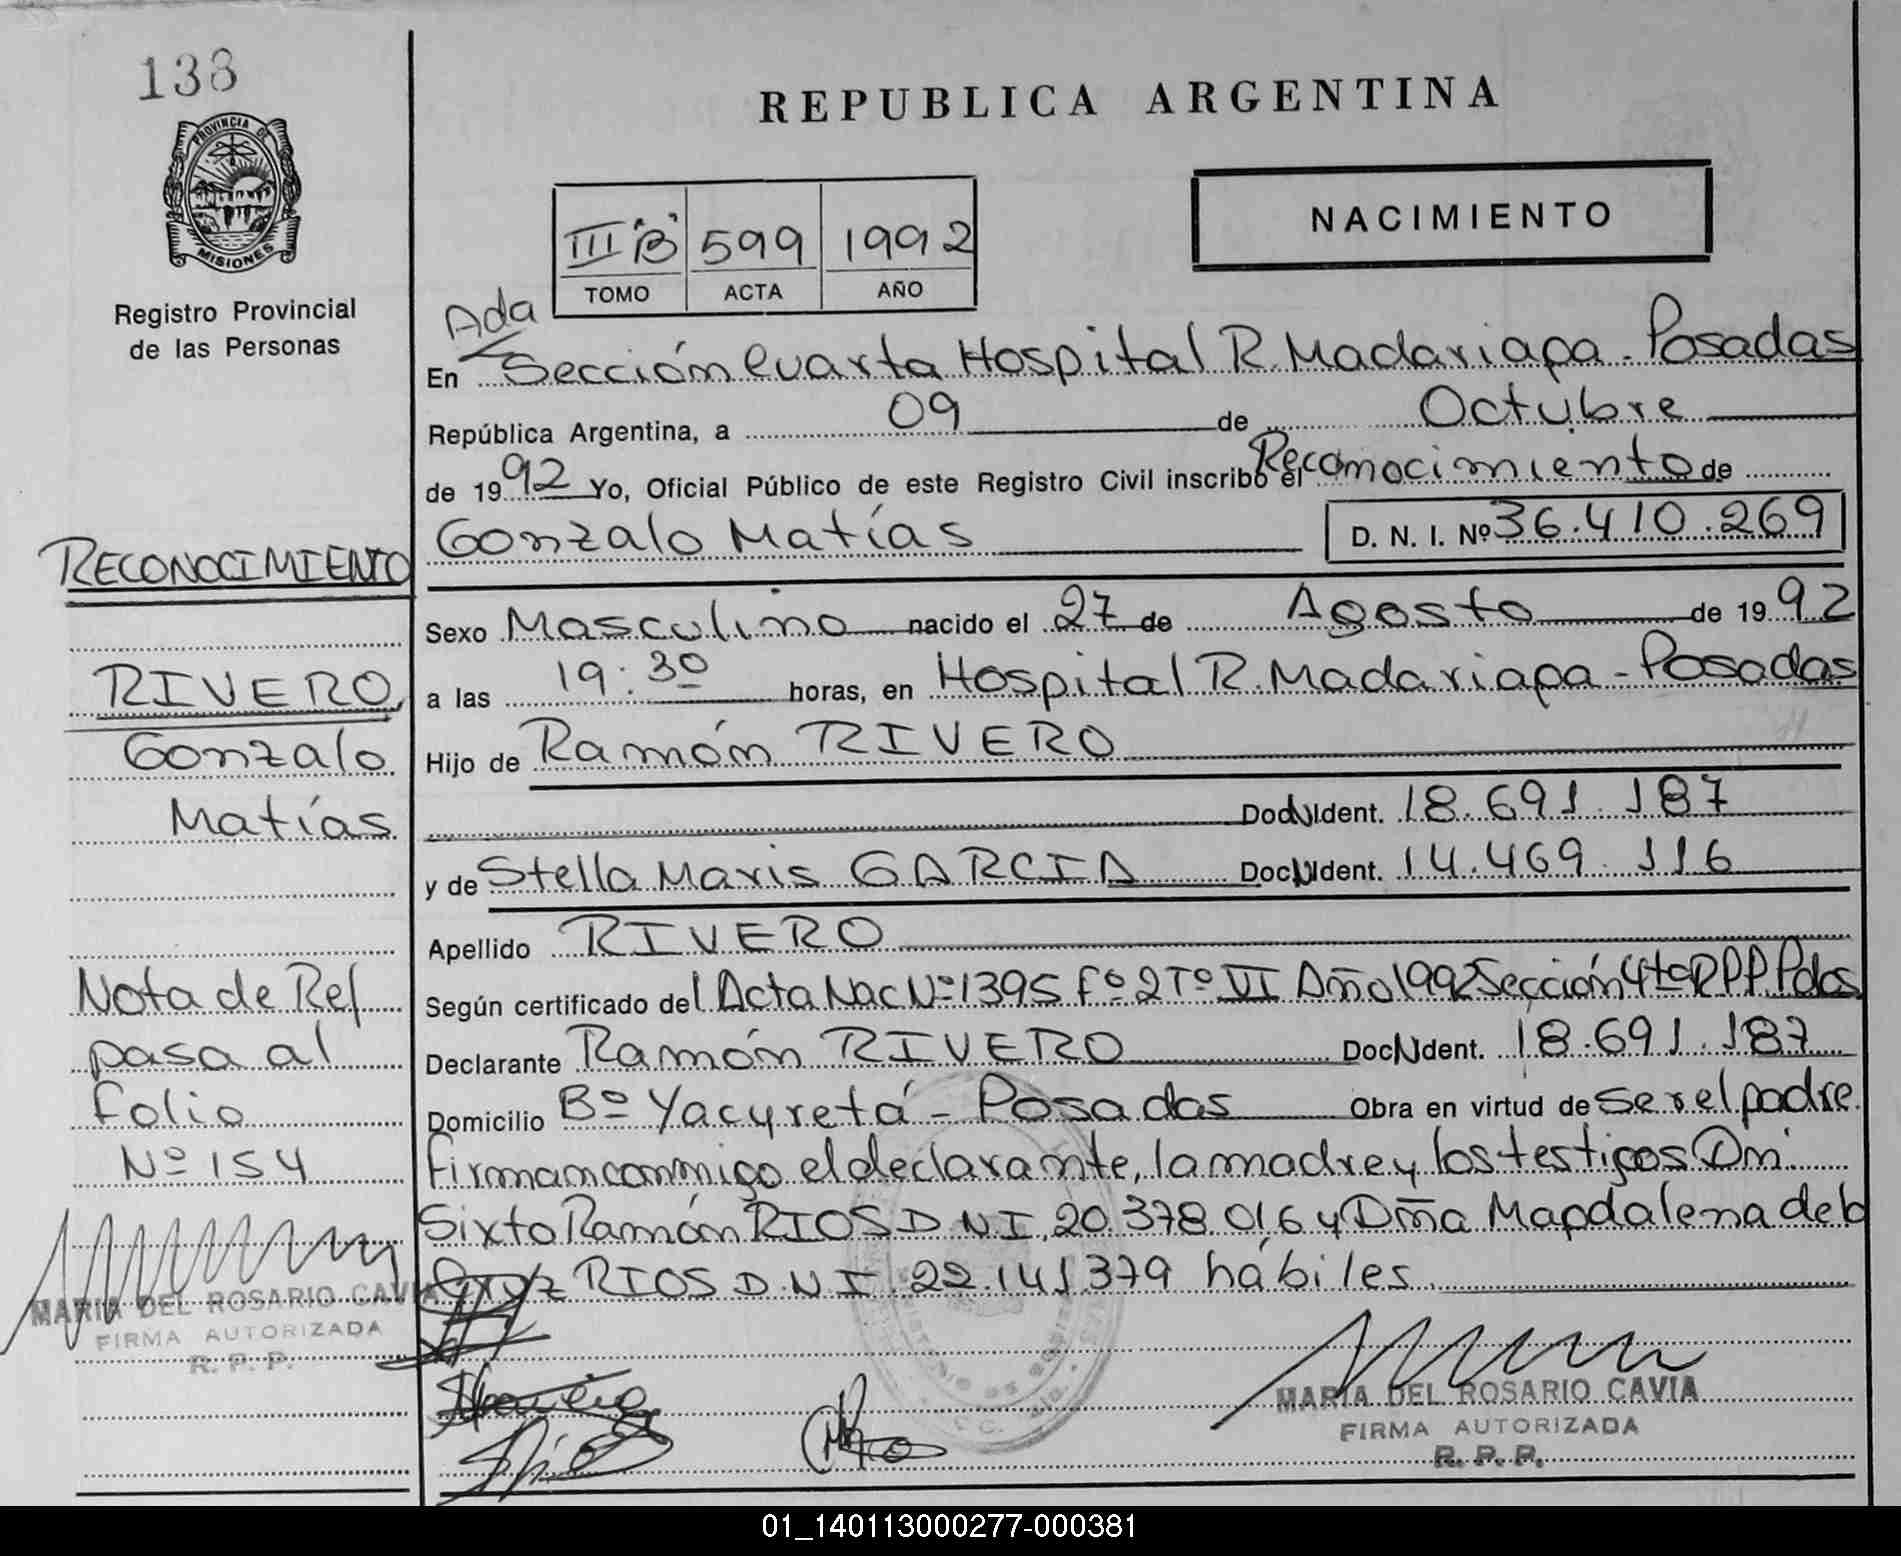 138
PROVINCIA DE
MISIONES
Registro Provincial
de las Personas
REPUBLICA ARGENTINA
NACIMIENTO
III "B" 599 1992
TOMO ACTA AÑO
Ada
En Sección Cuarta Hospital R. Madariaga - Posadas
República Argentina, a 09 de Octubre
de 1992 Yo, Oficial Público de este Registro Civil inscribo el Reconocimiento de
Gonzalo Matías D. N. I. Nº 36.410.269
RECONOCIMIENTO
Sexo Masculino nacido el 27 de Agosto de 1992
a las 19:30 horas, en Hospital R. Madariaga - Posadas
RIVERO,
Gonzalo
Matías
Hijo de Ramón RIVERO
Doc.N.Ident. 18.691.187
y de Stella Maris GARCIA Doc.N.Ident. 14.469.116
Apellido RIVERO
Según certificado del Acta Nac Nº 1395 Fº 2 Tº VI Año 1992 Sección 4ta R.P.P. Pdas
Declarante Ramón RIVERO Doc.N.Ident. 18.691.187
Domicilio Bº Yacyretá - Posadas Obra en virtud de ser el padre.
Firman conmigo el declarante, la madre y los testigos Dn
Sixto Ramón RIOS D.N.I. 20.378.016 y Dña Magdalena de la
Cruz RIOS D.N.I. 22.141.379 hábiles
Nota de Ref
pasa al
folio
Nº 154
MARIA DEL ROSARIO CAVIA
FIRMA AUTORIZADA
R. P. P.
MARIA DEL ROSARIO CAVIA
FIRMA AUTORIZADA
R. P. P.
01_140113000277-000381